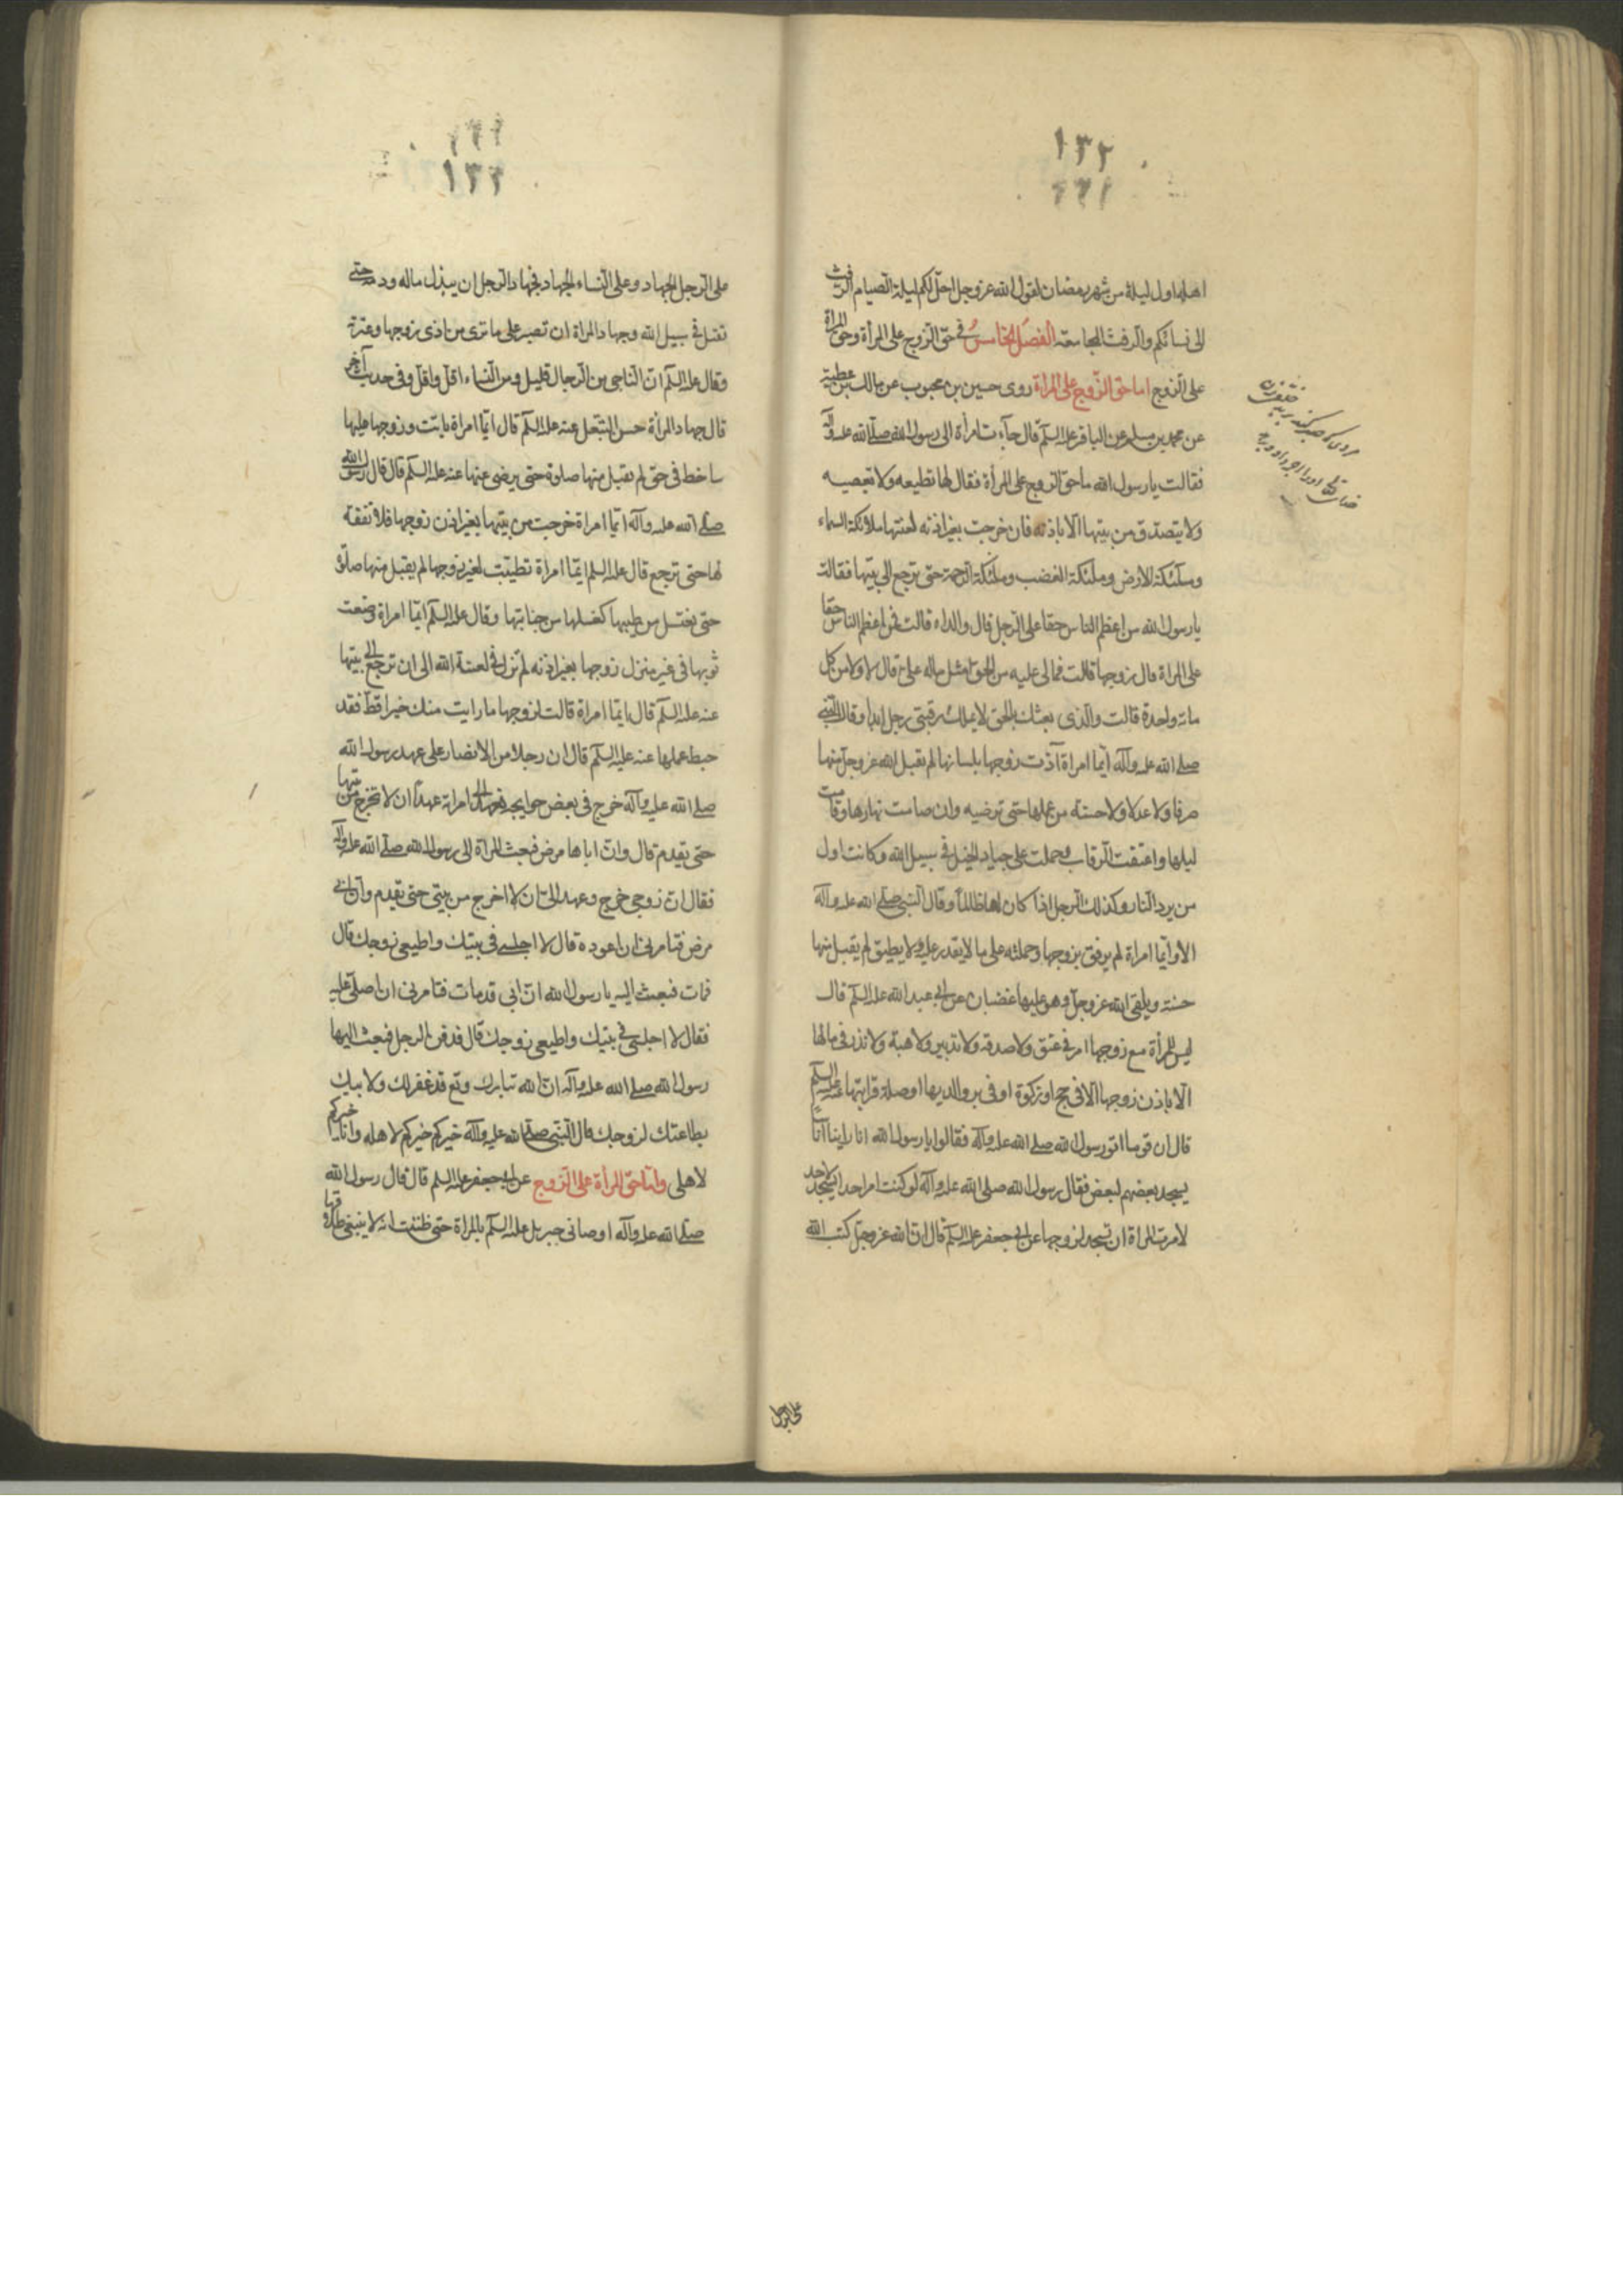 ١٣٢
اهله اول ليلة من شهر رمضان لقول الله عز وجل احل لكم ليلة الصيام الرفث
الى نسائكم والرفث المجامعة الفصل الخامس في حق الزوج على المرأة وحق المراة
على الزوج اما حق الزوج على المراة روى حسين بن محبوب عن مالك بن عطية
عن محمد بن مسلم عن الباقر عليه السلم قال جآءت امرأة الى رسول الله صلى الله عليه وآله
فقالت يا رسول الله ما حق الزوج على المرأة فقال لها تطيعه ولا تعصيه
ولا يتصدق من بيتها الا باذنه فان خرجت بغير اذنه لعنتها ملائكة السماء
وملئكة الارض وملئكة الغضب وملئكة الرحمة حتى ترجع الى بيتها فقالت
يا رسول الله من اعظم الناس حقا على الرجل قال والداه قالت فمن اعظم الناس حقا
على المراة قال زوجها قالت فمالى عليه من الحق مثل ماله على قال لا ولا من كل
ماته واحدة قالت والذى بعثك بالحق لا يملك رقبتى رجل ابدا وقال النبى
صلى الله عليه وآله ايما امراة آذت زوجها بلسانها لم تقبل الله عز وجل منها
صرفا ولا عدلا ولا حسنة من عملها حتى ترضيه وان صامت نهارها وقامت
ليلها واعتقت الرقاب وحملت على جياد الخيل فى سبيل الله وكانت اول
من يرد النار وكذلك الرجل اذا كان لها ظالما وقال النبى صلى الله عليه وآله
الا وايما امراة لم يرفق بزوجها وحملته على ما لا يقدر عليه ولا يطيق لم يقبل منها
حسنة ويلقى الله عز وجل وهو عليها غضبان عن ابى عبد الله عليه السلم قال
ليس للمرأة مع زوجها امر فى عتق ولا صدقة ولا تدبير ولا هبة ولا نذر فى مالها
الا باذن زوجها الا فى حج او زكوة او فى بر والديها او صلة قرابتها عنه عليه السلم
قال ان قوما اتو رسول الله صلى الله عليه وآله فقالوا يا رسول الله انا راينا اناسا
يسجد بعضهم لبعض فقال رسول الله صلى الله عليه وآله لو كنت امر احدا يسجد لاحد
لامرت المراة ان تسجد لزوجها عن ابى جعفر عليه السلم قال ان الله عز وجل كتب الله
على الرجل
١٣٣
على الرجل الجهاد وعلى النساء الجهاد فجهاد الرجل ان يبذل ماله ودمه حتى
تقتل فى سبيل الله وجهاد المراة ان تصبر على ما ترى من اذى زوجها وغيرته
وقال عليه السلم ان الناجى من الرجال قليل ومن النساء اقل واقل وفى حديث آخر
قال جهاد المرأة حسن التبعل عنه عليه السلم قال ايما امراة باتت وزوجها عليها
ساخط فى حق لم يقبل منها صلوة حتى يرضى عنها عنه عليه السلم قال قال رسول الله
صلى الله عليه وآله ايما امراة خرجت من بيتها بغير اذن زوجها فلا نفقة
لها حتى ترجع قال عليه السلم ايما امراة تطيبت لغير زوجها لم يقبل منها صلوة
حتى يغتسل من طيبها كغسلها من جنابتها وقال عليه السلم ايما امراة وضعت
ثوبها فى غير منزل زوجها بغير اذنه لم تزل فى لعنة الله الى ان ترجع الى بيتها
عنه عليه السلم قال ايما امراة قالت لزوجها ما رايت منك خيرا قط فقد
حبط عملها عنه عليه السلم قال ان رجلا من الانصار على عهد رسول الله
صلى الله عليه وآله خرج فى بعض حوايجه فعهد الى امراته عهدا ان لا تخرج من بيتها
حتى يقدم قال وان اباها مرض فبعث المراة الى رسول الله صلى الله عليه وآله
فقال ان زوجى خرج وعهد الى ان لا اخرج من بيتى حتى يقدم وان ابى
مرض فتامرنى ان اعوده قال لا اجلسى فى بيتك واطيعى زوجك قال
فمات فبعث اليه يا رسول الله ان ابى قد مات فتامرنى ان اصلى عليه
فقال لا اجلسى فى بيتك واطيعى زوجك قال فدفن الرجل فبعث اليها
رسول الله صلى الله عليه وآله ان الله تبارك وتع قد غفر لك ولابيك
بطاعتك لزوجك قال النبى صلى الله عليه وآله خيركم خيركم لاهله وانا خيركم
لاهلى واما حق المرأة على الزوج عن ابى جعفر عليه السلم قال قال رسول الله
صلى الله عليه وآله اوصانى جبريل عليه السلم بالمراة حتى ظننت انه لا ينبغى طلاقها